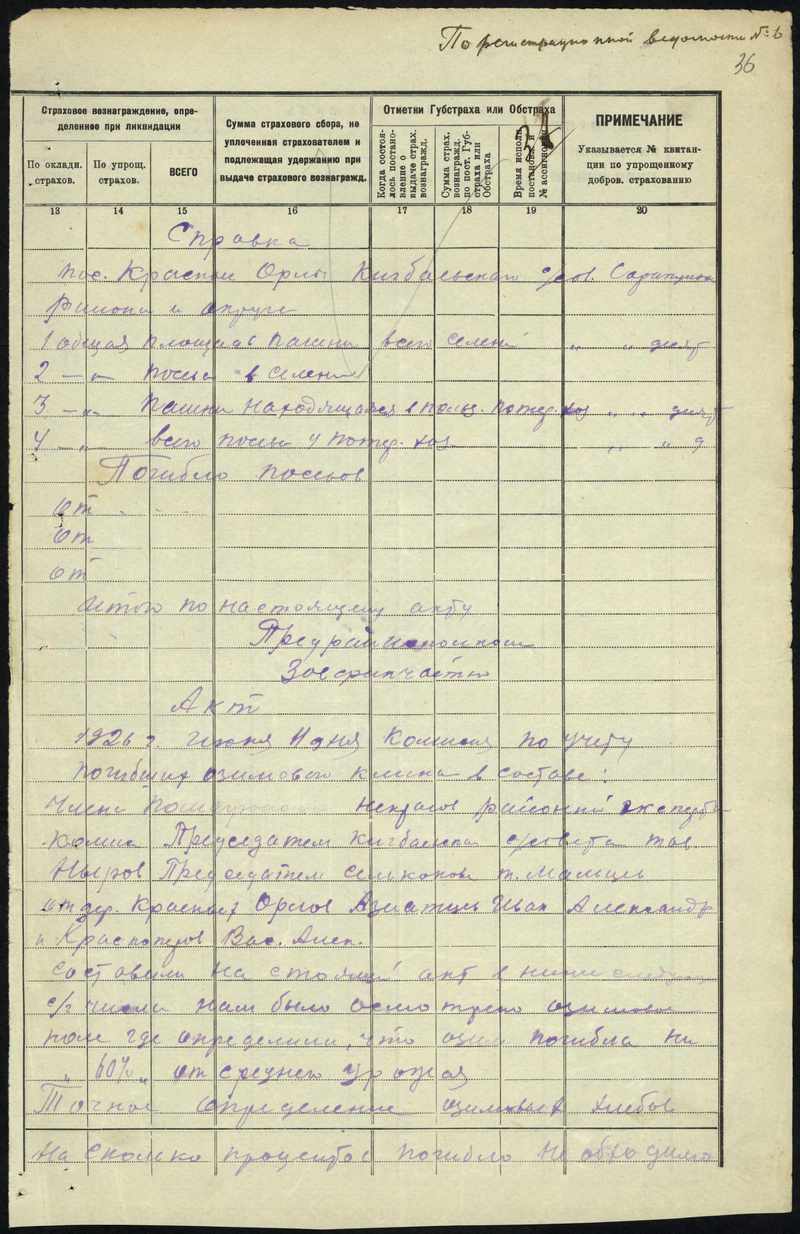 По регистрационной ведомости № 6
36
Страховое вознаграждение, опре-
деленное при ликвидации
По окладн.
страхов.
По упрощ.
страхов.
ВСЕГО
Сумма страхового сбора, не
уплоченная страхователем и
подлежащая удержанию при
выдаче страхового вознагражд.
Отметки Губстраха или Обстраха
Когда состоя-
лось постано-
вление о
выдаче страх.
вознагражд.
Сумма страх.
вознагражд.
по пост. Губ-
страха или
Обстраха
Время исполн.
постановл. и
№ ассигновки
ПРИМЕЧАНИЕ
Указывается № квитан-
ции по упрощенному
добров. страхованию
13 14 15 16 17 18 19 20
Справка
пос. Красных Орлы Кигбаевского с/сов. Сарапульск
Района и округа
1 общая площадь пашни всего селений " " десят
2 — " — посева в селении
3 — " — пашни находящаяся в польз. потер. хоз " " десят
4 — " — всего посева у потер. хоз " " д
Погибло посевов
от
от
от
Итого по настоящему акту
Предрайисполкома
Завфинчастью
Акт
1926 г. июня 11 дня комисия по учету
погибших озимового клина в составе:
Члена Некрасов районный эксперт
комис Председателем Кигбаевского с/совета тов
Председателем т. Мальцев
от дер. Красных Орлов Азиатцев Иван Александр
и Красноперов Вас. Алек.
составили настоящий акт в ниже следующ
с/г числа нам было осмотрено озимовое
поле где определили, что озим погибла на
" 60% " от среднего урожая
Точное определение озимовых хлебов
на сколько процентов погибло необходимо